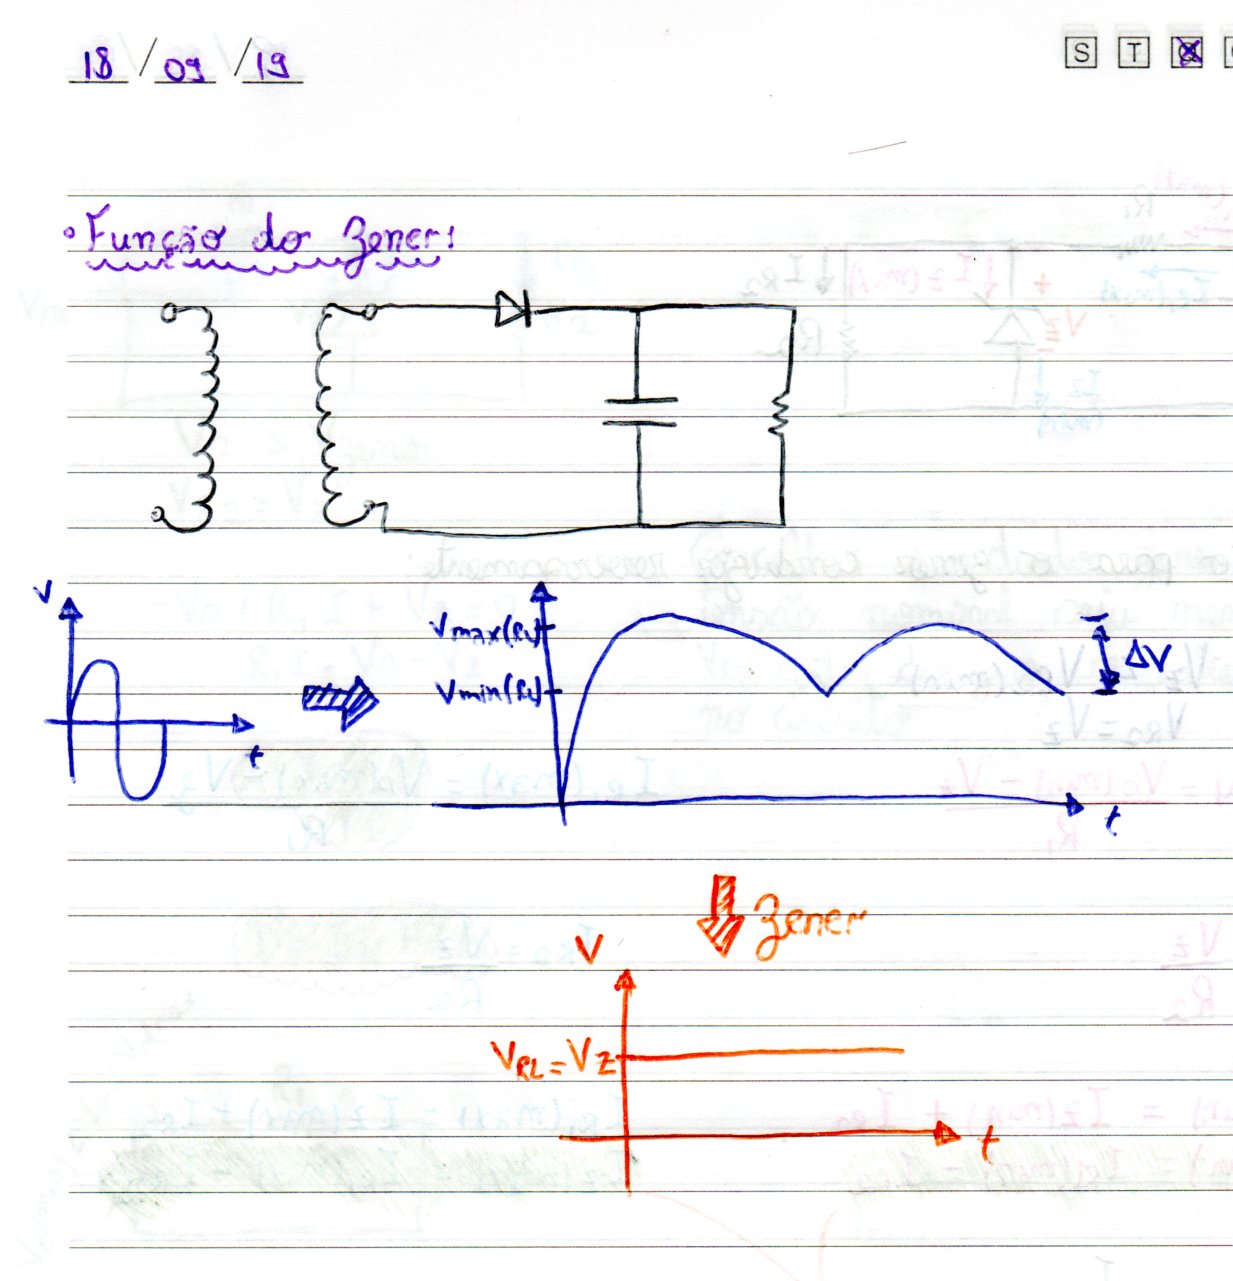 18/09/19
S T Q
• Função do Zener:
V
Vmax(RL)
Vmin(RL)
ΔV
t
t
Zener
V
VRL=VZ
t